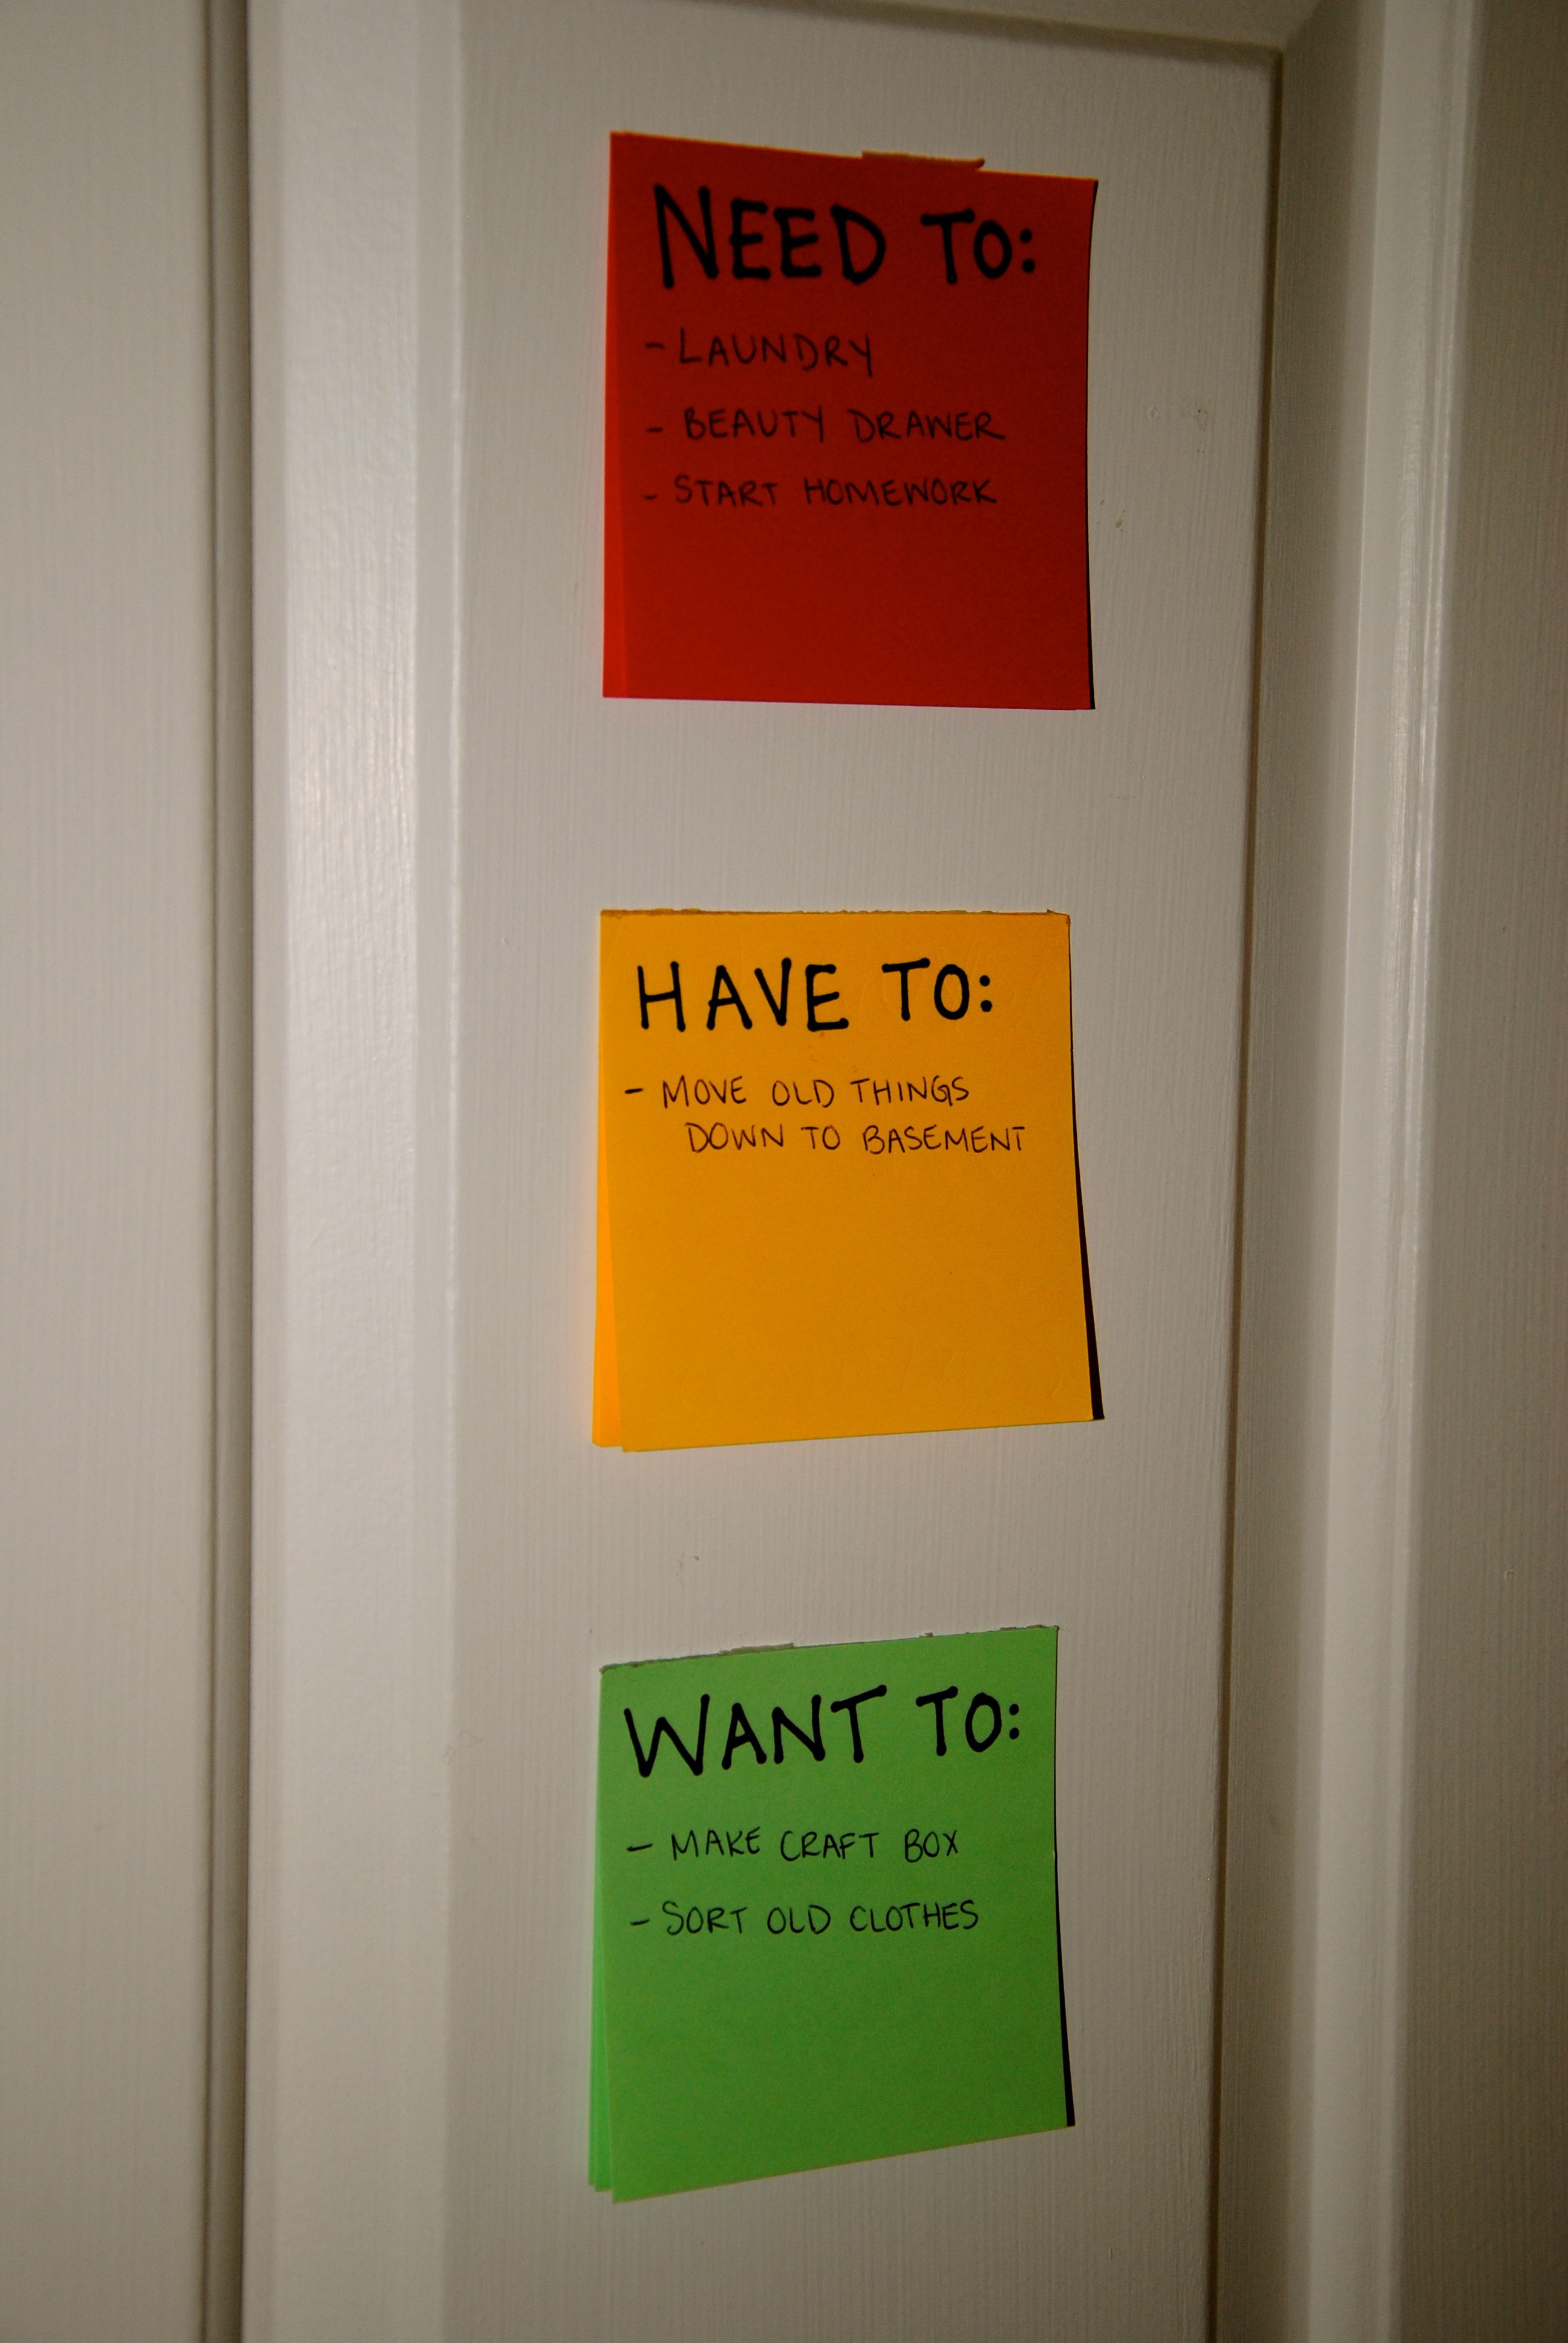 NEED TO:
- LAUNDRY
- BEAUTY DRAWER
- START HOMEWORK
HAVE TO:
- MOVE OLD THINGS
DOWN TO BASEMENT
WANT TO:
- MAKE CRAFT BOX
- SORT OLD CLOTHES